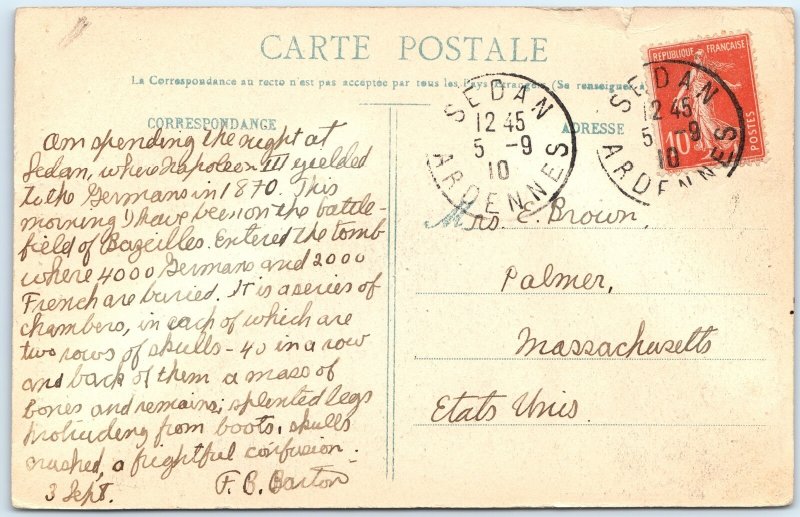 3
CARTE POSTALE
La Correspondance au recto n'est pas acceptée par tous les Pays étrangers (Se renseigner à
CORRESPONDANCE
ADRESSE
RÉPUBLIQUE FRANÇAISE
POSTES
10
SEDAN
12 45
5 -9
10
ARDENNES
SEDAN
12 45
5 -9
10
ARDENNES
Am spending the night at
Sedan, where Napoleon III yielded
to the Germans in 1870. This
morning I have been on the battle-
field of Bazeilles. Entered the tomb
where 4000 Germans and 2000
French are buried. It is a series of
chambers, in each of which are
two rows of skulls - 40 in a row
and back of them a mass of
bones and remains; splented legs
protruding from boots, skulls
crushed, a frightful confusion.
3 Sept. F. B. Barton
Mrs. E. Brown,
Palmer,
Massachusetts
Etats Unis